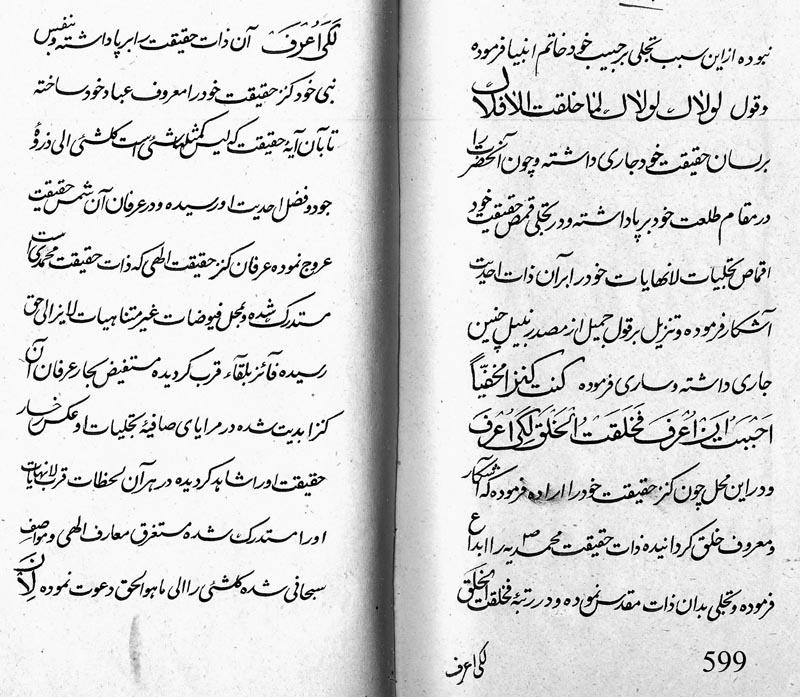 نبوده از این سبب تجلی بر حبیب خود خاتم انبیا فرموده
و قول لولاک لولاک لما خلقت الافلاک
بر لسان حقیقت خود جاری داشته و چون آنحضرت را
در مقام طلعت خود بر پا داشته و در تجلی قمص حقیقت خود
اقماص تجلیات لانهایات خود را بر آن ذات احدیت
آشکار فرموده و تنزیل بر قول جمیل از مصدر نبیل چنین
جاری داشته و ساری فرموده کنت کنزا مخفیّاً
احببت ان اعرف فخلقت الخلق لکی اعرف
و در این محل چون کنز حقیقت خود را اراده فرموده که آشکار
و معروف خلق گردانیده ذات حقیقت محمدیه ص را ابداع
فرموده و تجلی بدان ذات مقدس نموده و در رتبهٔ فخلقت الخلق
لکی اعرف
599
لکی اعرف آن ذات حقیقت را بر پا داشته و بنفس
نبی خود کنز حقیقت خود را معروف عباد خود ساخته
تا بآن آیهٔ حقیقت که لیس کمثلها شیء است کلشئی الی ذروهٔ
جود و فضل احدیت او رسیده و در عرفان آن شمس حقیقت
عروج نموده عرفان کنز حقیقت الهی که ذات حقیقت محمدی است
مستدرک شده و بمحل فیوضات غیر متناهیات لایزالی حق
رسیده فآئز بلقآء قرب گردیده مستفیض بحار عرفان آن
کنز ابدیت شده در مرایای صافیهٔ تجلیات او عکس رخسار
حقیقت او را شاهد گردیده در هر آن لحظات قرب لانهایات
او را مستدرک شده مستغرق معارف الهی و مواصف
سبحانی شده کلشئی را الی ما هو الحق دعوت نموده لان